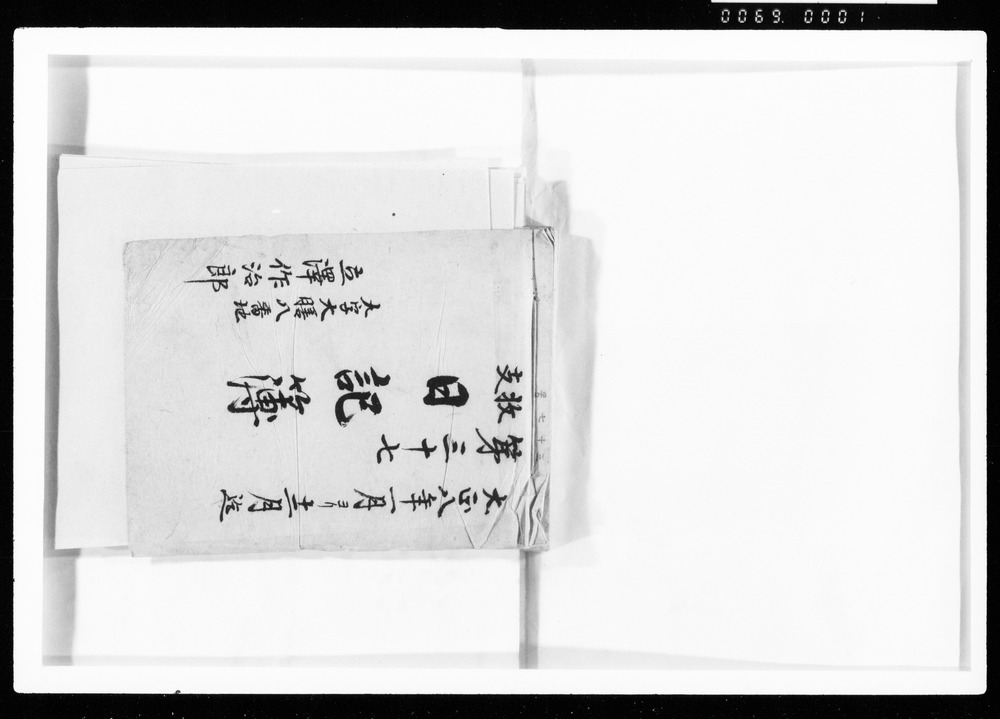 三十七号
大正八年一月ヨリ十二月迄
第三十七
收支
日記簿
大字大膳八番地
立澤作治郎
0069 0001